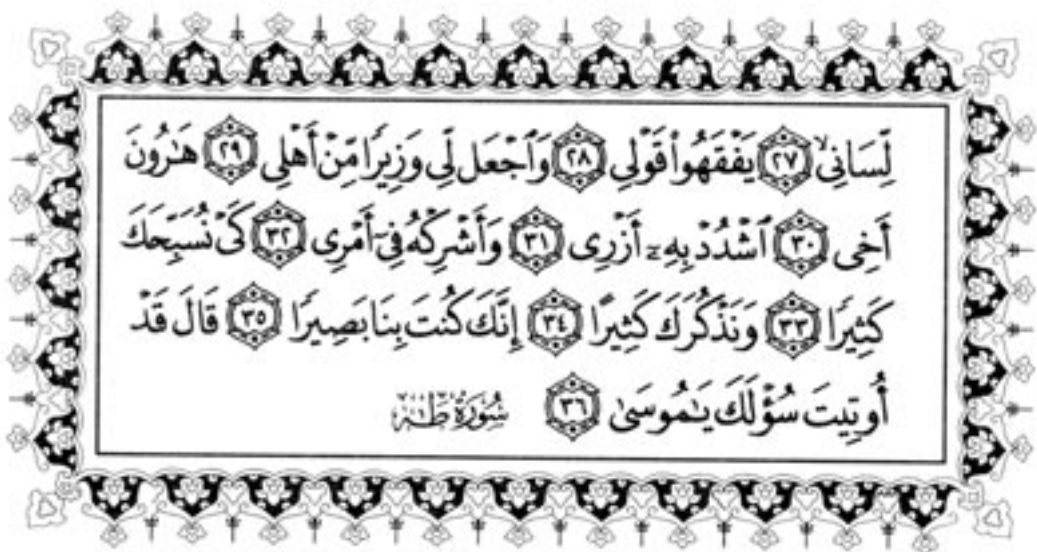 لِّسَانِى ﴿٢٧﴾ يَفْقَهُوا۟ قَوْلِى ﴿٢٨﴾ وَٱجْعَل لِّى وَزِيرًا مِّنْ أَهْلِى ﴿٢٩﴾ هَـٰرُونَ
أَخِى ﴿٣٠﴾ ٱشْدُدْ بِهِۦٓ أَزْرِى ﴿٣١﴾ وَأَشْرِكْهُ فِىٓ أَمْرِى ﴿٣٢﴾ كَىْ نُسَبِّحَكَ
كَثِيرًا ﴿٣٣﴾ وَنَذْكُرَكَ كَثِيرًا ﴿٣٤﴾ إِنَّكَ كُنتَ بِنَا بَصِيرًا ﴿٣٥﴾ قَالَ قَدْ
أُوتِيتَ سُؤْلَكَ يَـٰمُوسَىٰ ﴿٣٦﴾ سُورَةُ طه